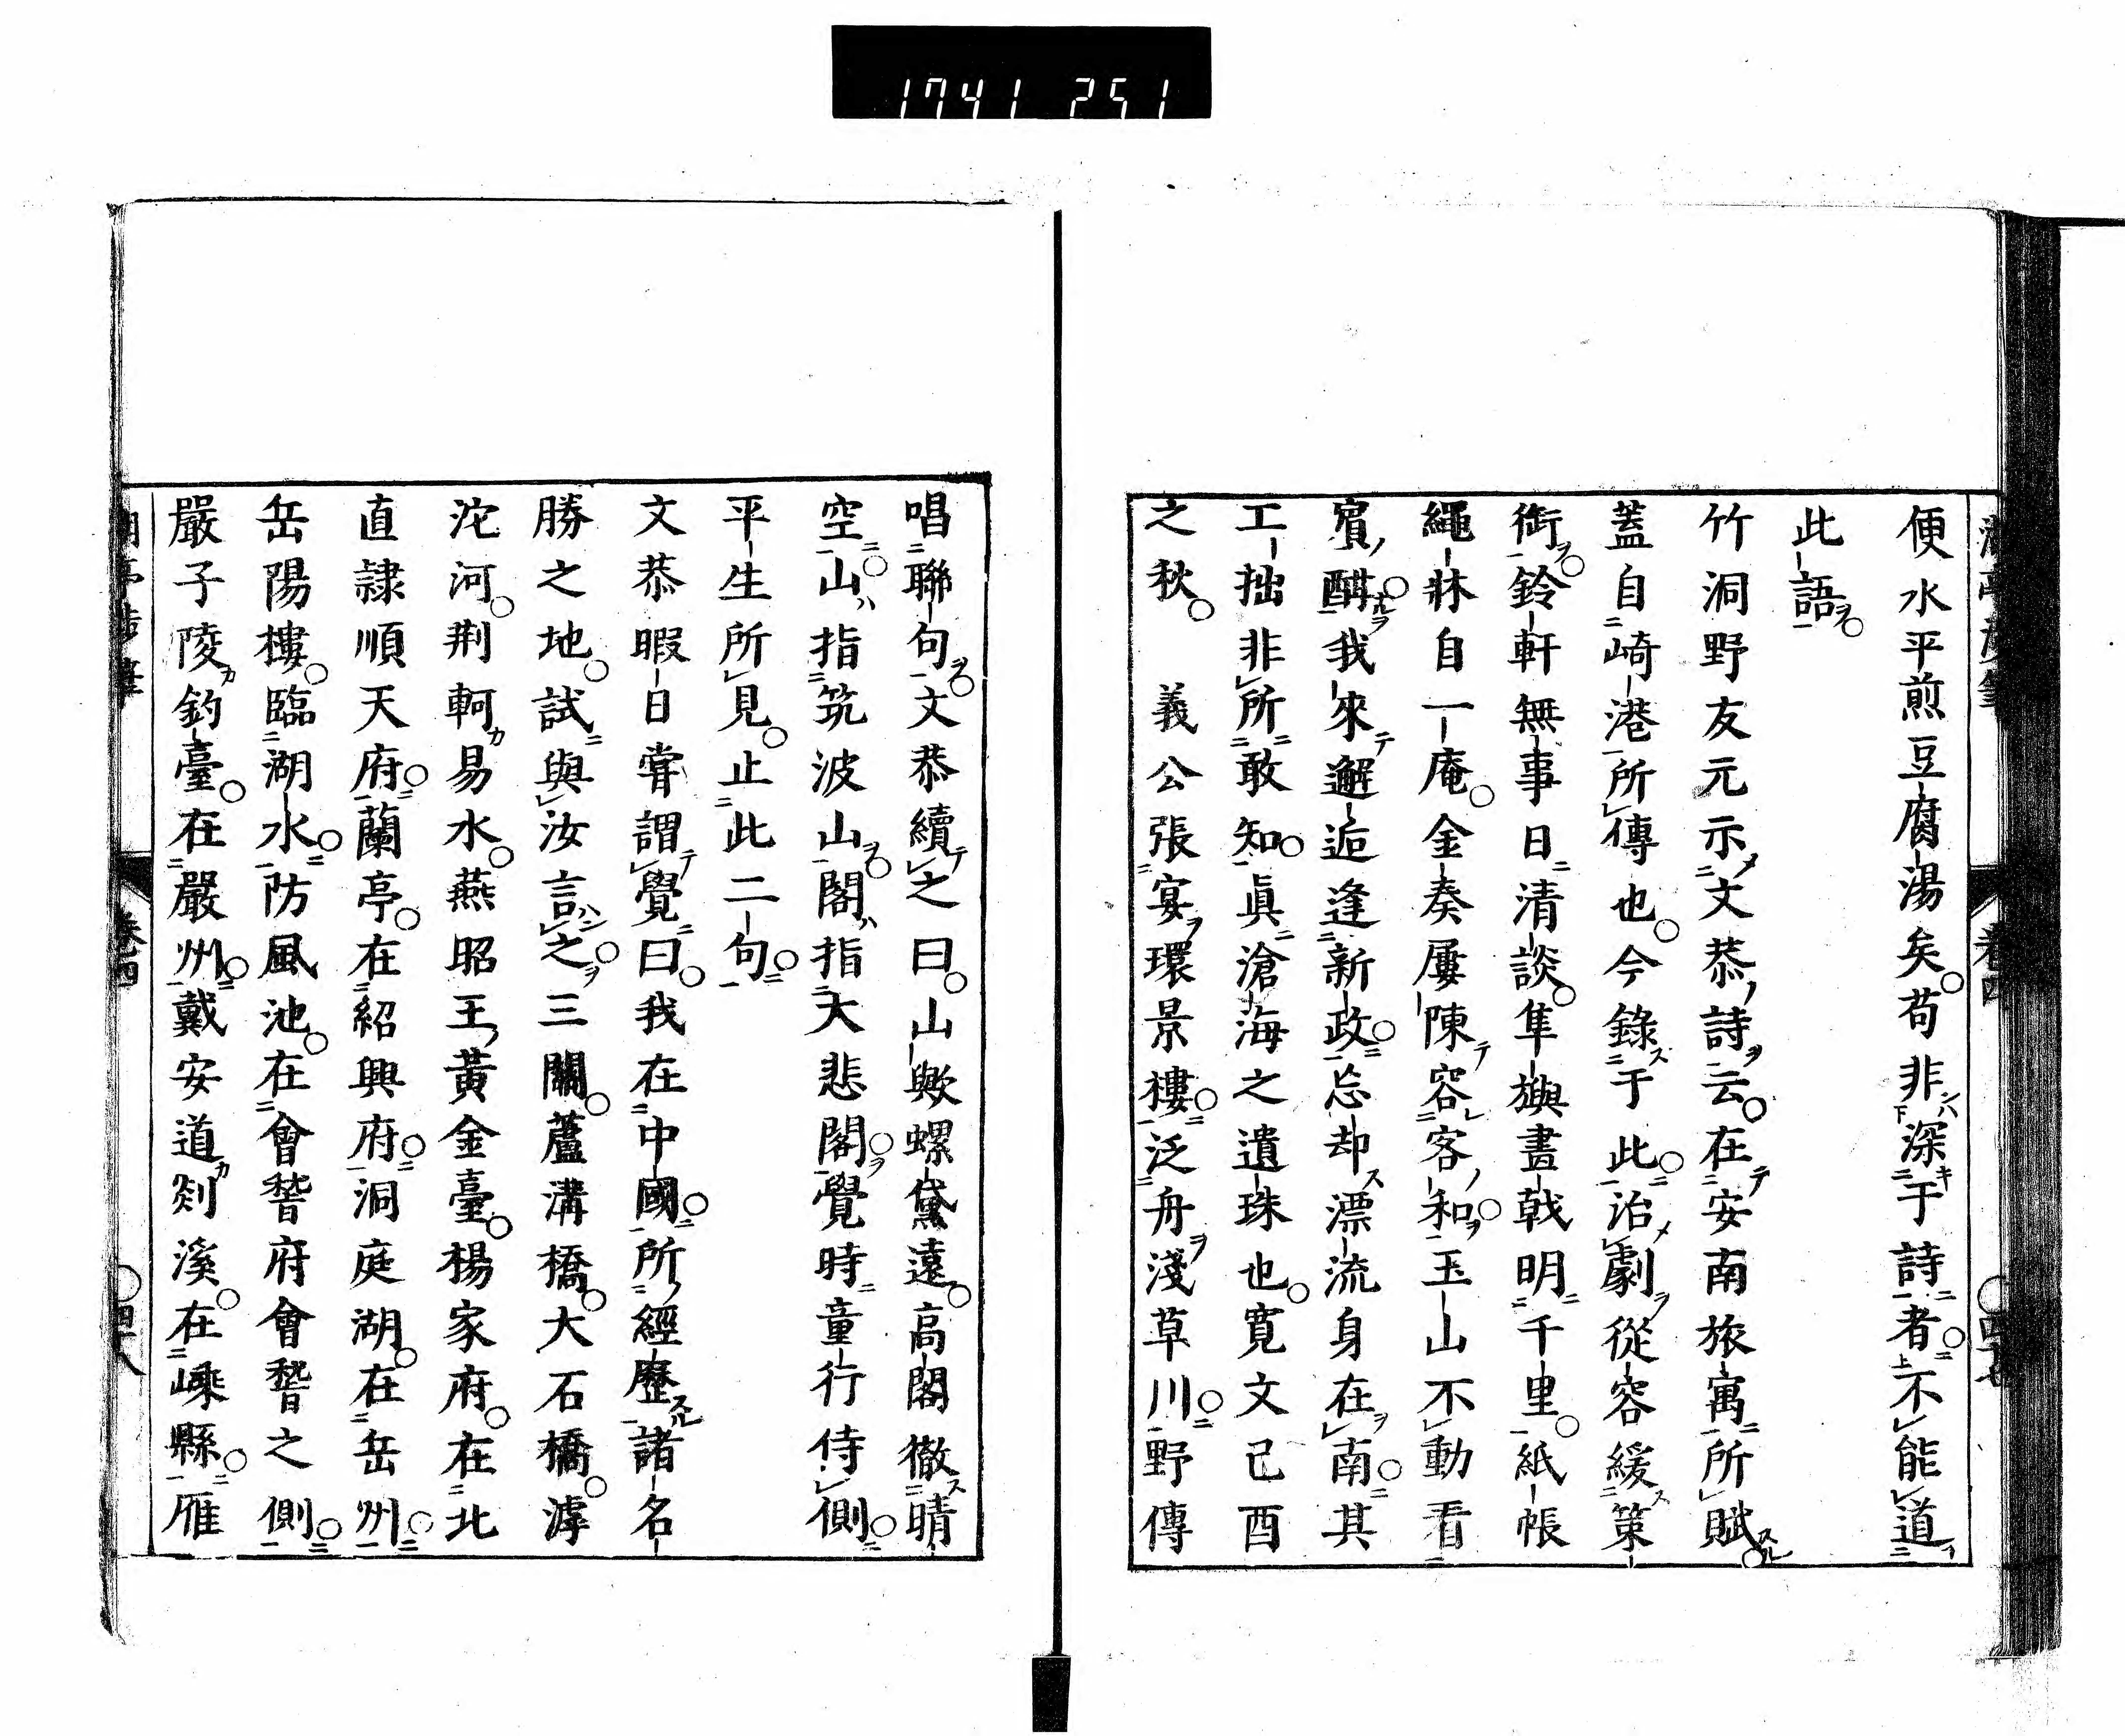 1741 251
便水平煎豆腐湯矣苟非深于詩者不能道
此語
竹洞野友元示文恭詩云在安南旅寓所賦
蓋自崎港所傳也今錄于此治劇從容緩策
銜鈴軒無事日清談隼旟晝戟明千里紙帳
繩牀自一庵金奏屢陳容客和玉山不動看
賓酣我來邂逅逢新政忘却漂流身在南其
工拙非所敢知眞滄海之遺珠也寛文己酉
之秋　義公張宴環景樓泛舟淺草川野傳
唱聯句文恭續之曰山歟螺黛遠高閣徹晴
空山指筑波山閣指大悲閣覺時童行侍側
平生所見止此二句
文恭暇日甞謂覺曰我在中國所經歷諸名
勝之地試與汝言之三關蘆溝橋大石橋滹
沱河荆軻易水燕昭王黃金臺楊家府在北
直隷順天府蘭亭在紹興府洞庭湖在岳州
岳陽樓臨湖水防風池在會稽府會稽之側
嚴子陵釣臺在嚴州戴安道剡溪在嵊縣雁
卷四